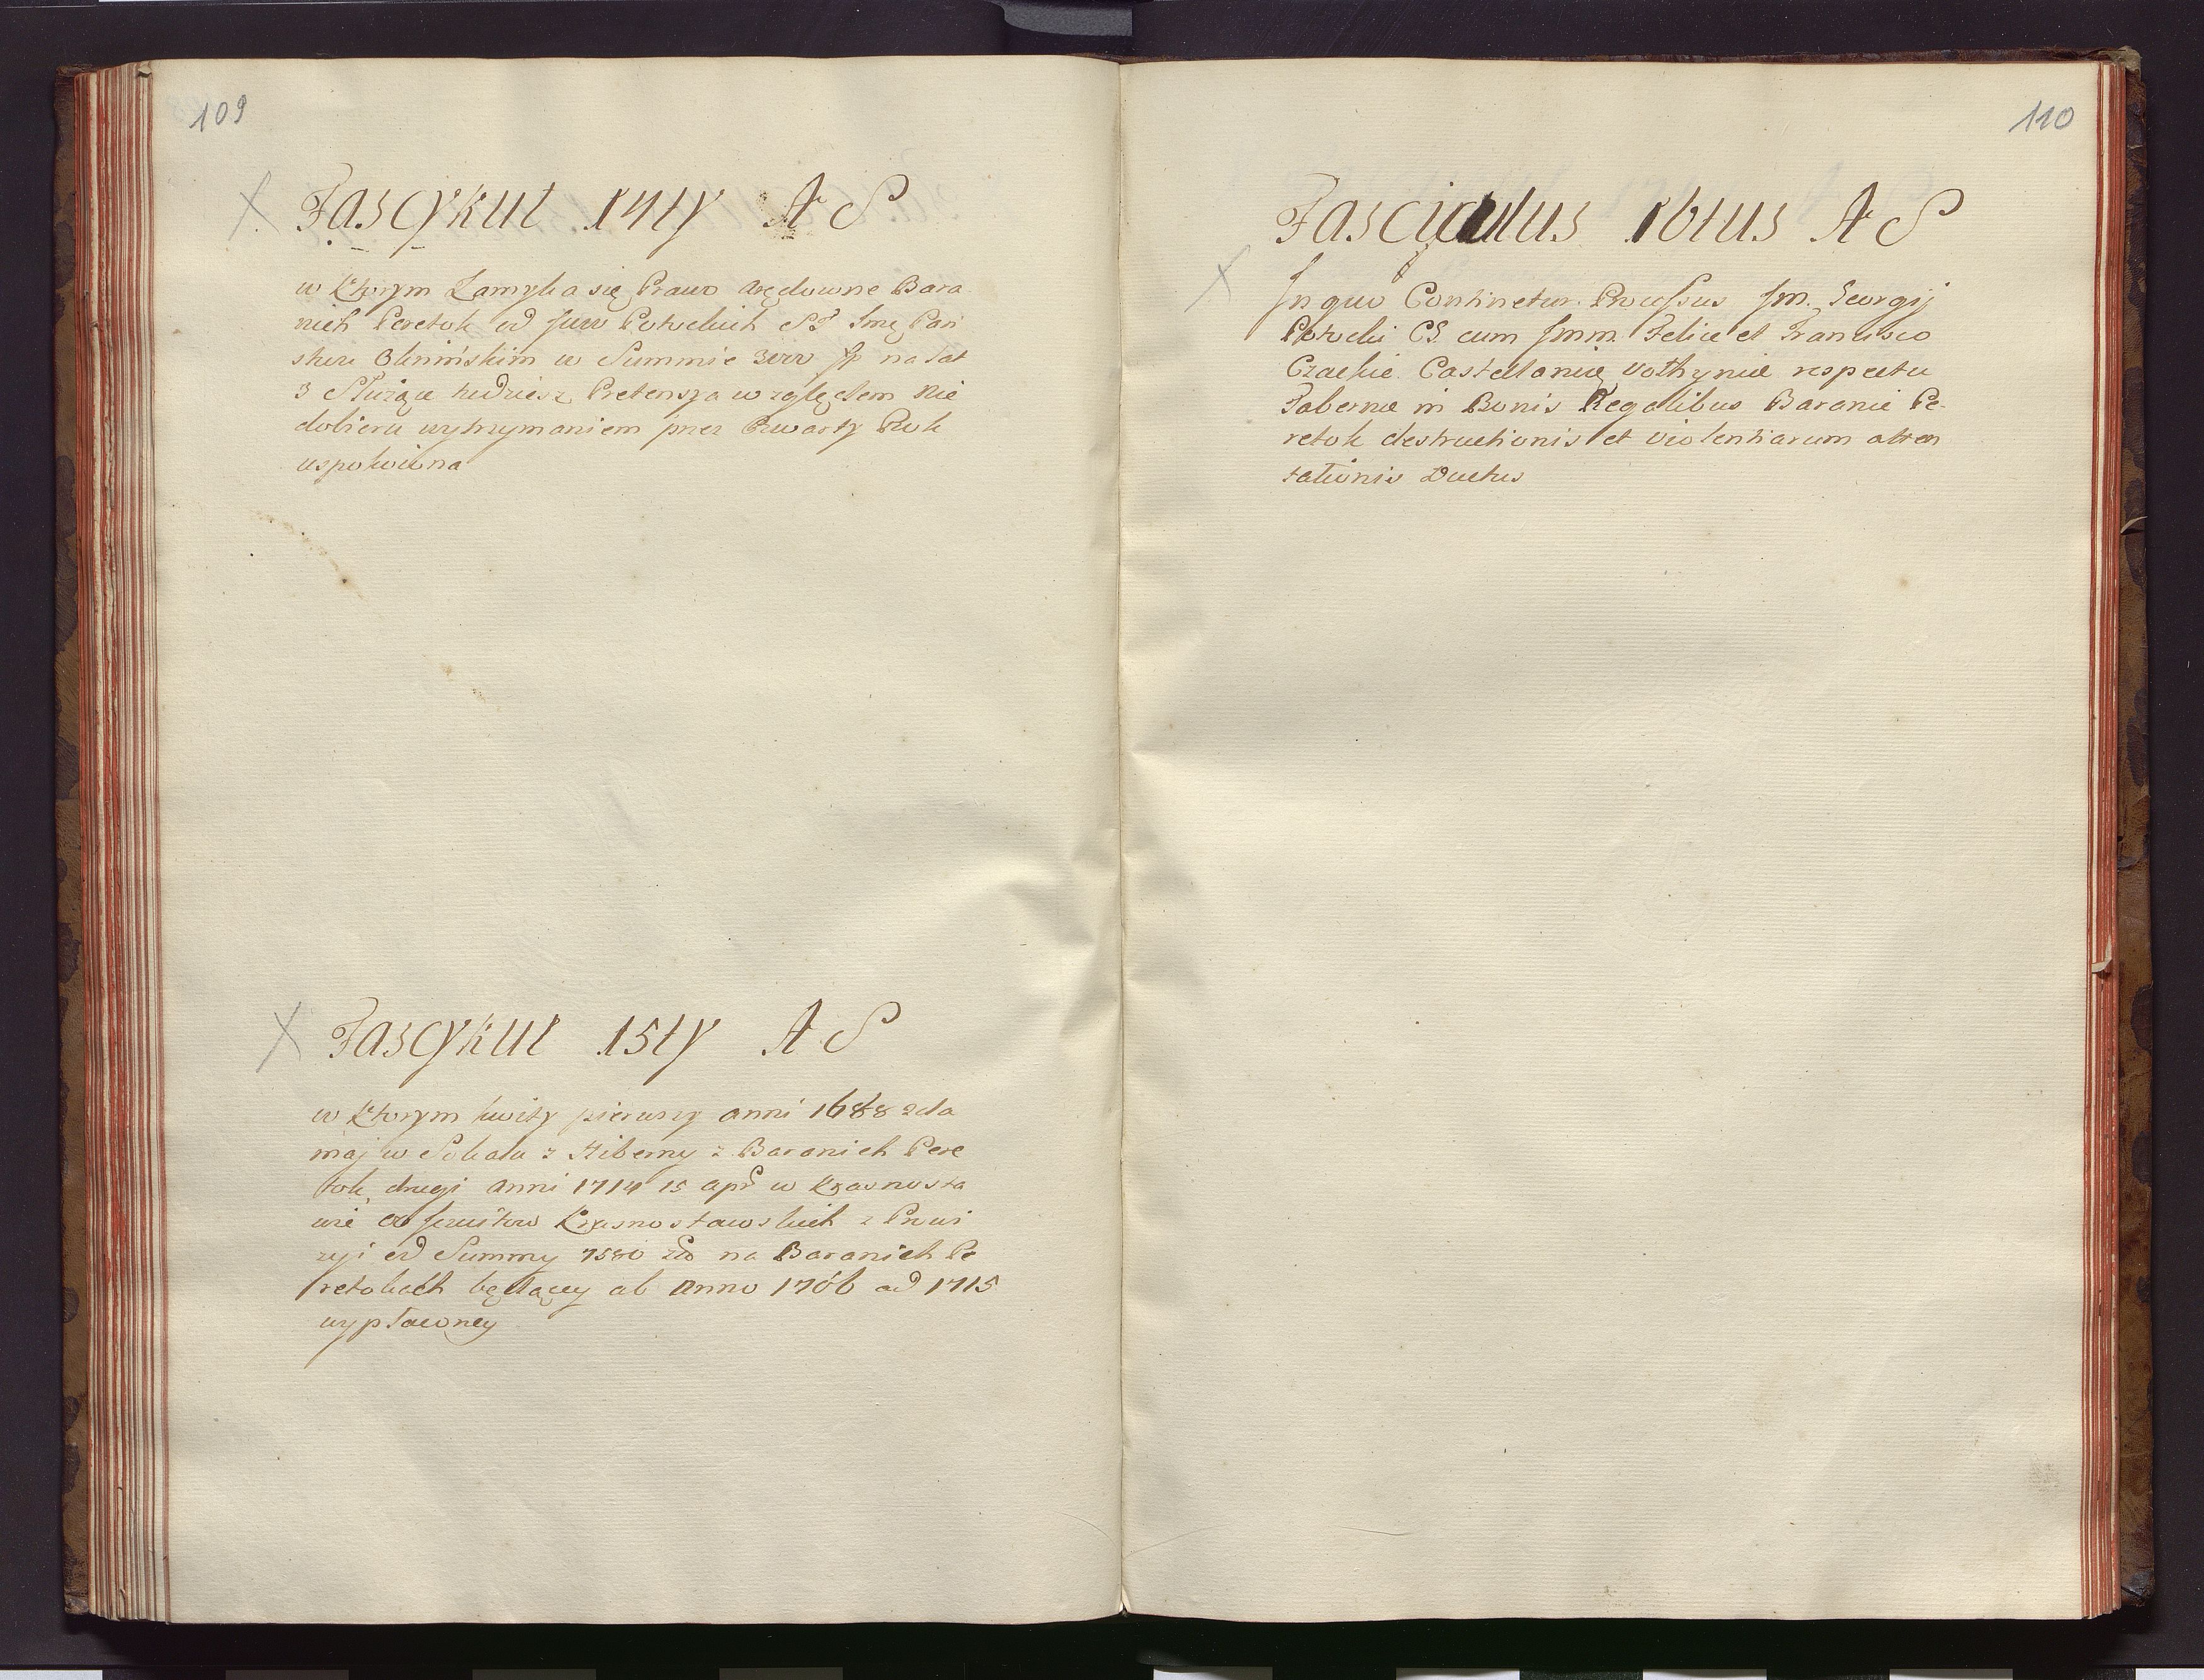 109
Fascykuł 14ty A S
w ktorym Zamyka się Prawo Arędowne Bara
nich Peretok od Potockich Pań
stwu Olenińskim w Summie na lat
3 Służące tudziesz Pretensya względem nie
dobioru wytrzymaniem przez Czwarty Rok
uspokoiona
Fascykuł 15ty A S
w ktorym kwity pierwszy anni 1688 2da
maj w Sokalu z Hiberny z Baranich Pere
tok, drugi anni 1714 15 apr w Krasnosta
wie Krasnostawskich z Prowi
zyi od Summy 7580 na Baranich Pe
retokach będącey ab Anno 1706 ad 1715
wypłaconey
110
Fasciculus 16tus A S
In quo Continetur Processus Im. Georgij
Potocki CS cum Imm. Felice et Francisco
Czackie Castellanie Volhyniae respectu
Tabernae in Bonis Regalibus Baranie Pe
retok destructionis et violentiarum atten
tationis Ductus